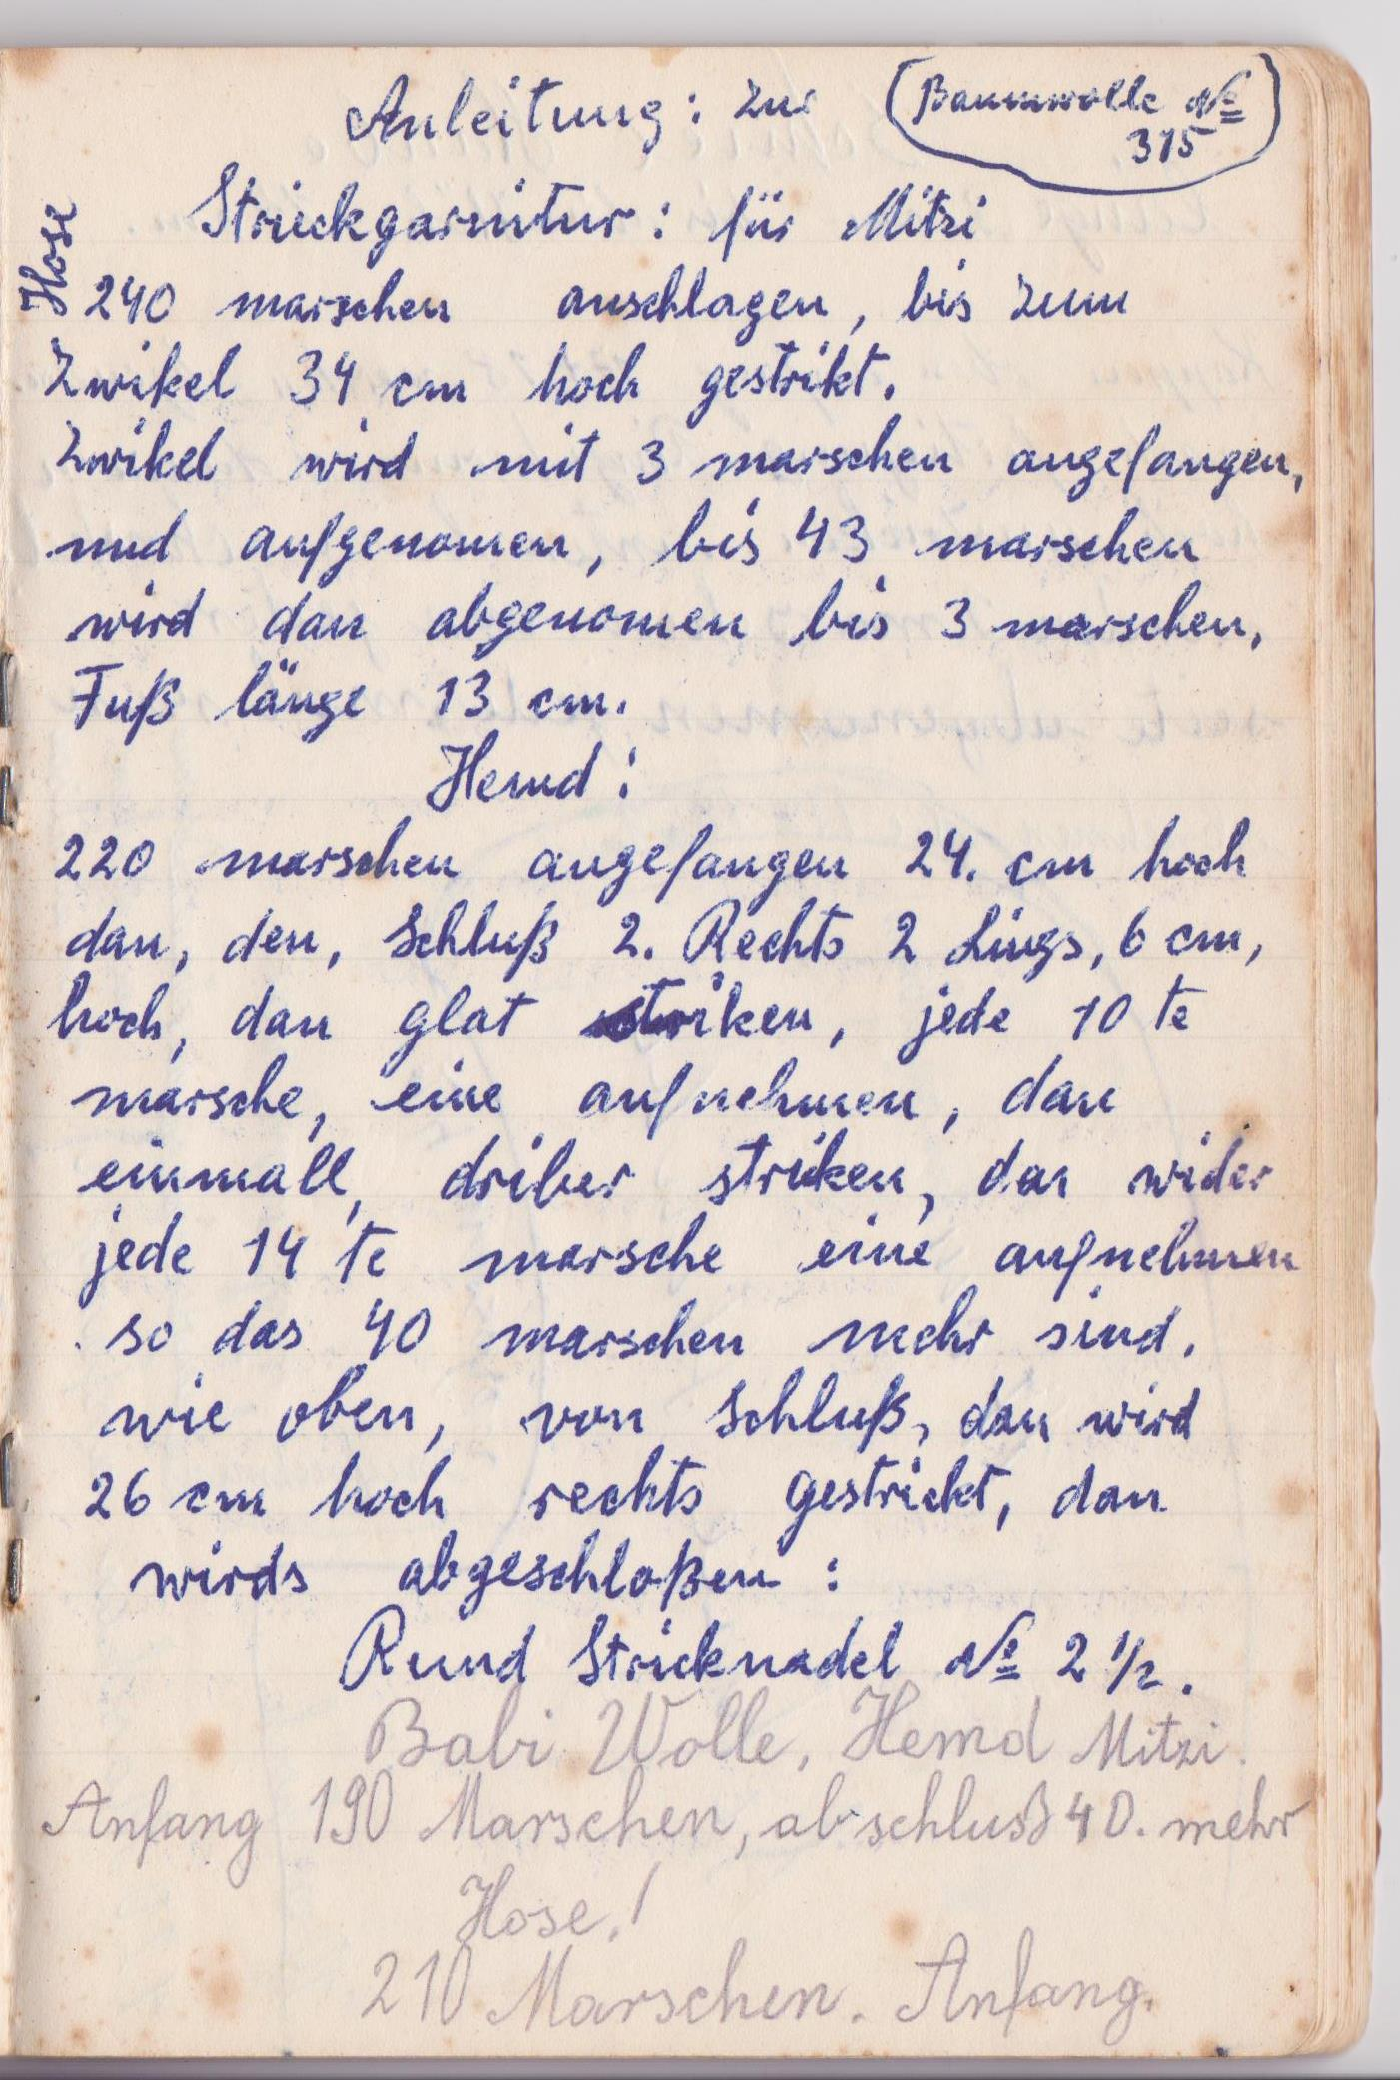 Anleitung: zur
(Baumwolle №
315)
Strickgarnitur: für Mitzi
Hose
240 marschen anschlagen, bis zum
Zwikel 34 cm hoch gestrikt.
Zwikel wird mit 3 marschen angefangen,
und aufgenomen, bis 43 marschen
wird dan abgenomen bis 3 marschen,
Fuß länge 13 cm.
Hemd:
220 marschen angefangen 24. cm hoch
dan, den, Schluß 2. Rechts 2 Lings, 6 cm,
hoch, dan glat striken, jede 10 te
marsche, eine aufnehmen, dan
einmall, driber striken, dan wider
jede 14 te marsche eine aufnehmen
so das 40 marschen mehr sind.
wie oben, von Schluß, dan wird
26 cm hoch rechts gestrickt, dan
wirds abgeschloßen:
Rund Stricknadel № 2 1/2.
Babi Wolle, Hemd Mitzi.
Anfang 190 Marschen, abschluß 40. mehr
Hose.!
210 Marschen. Anfang.